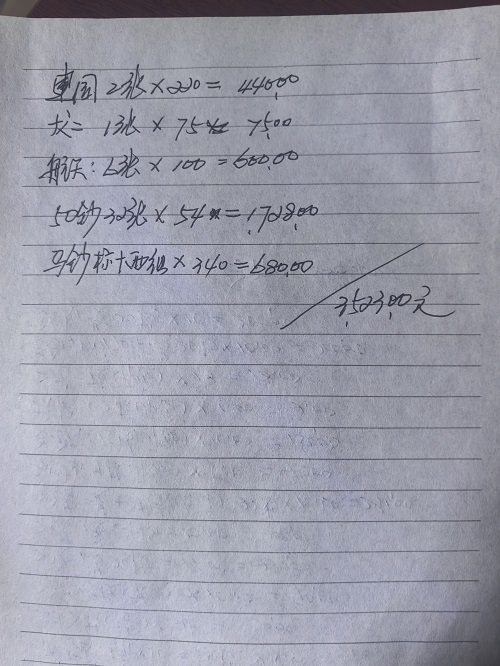 建国2张×220= 440.00
龙= 1张× 75= 75.00
航天:6张×100=600.00
50钞32张×54=1,728.00
马钞标十两组×340=680.00
3,523.00元